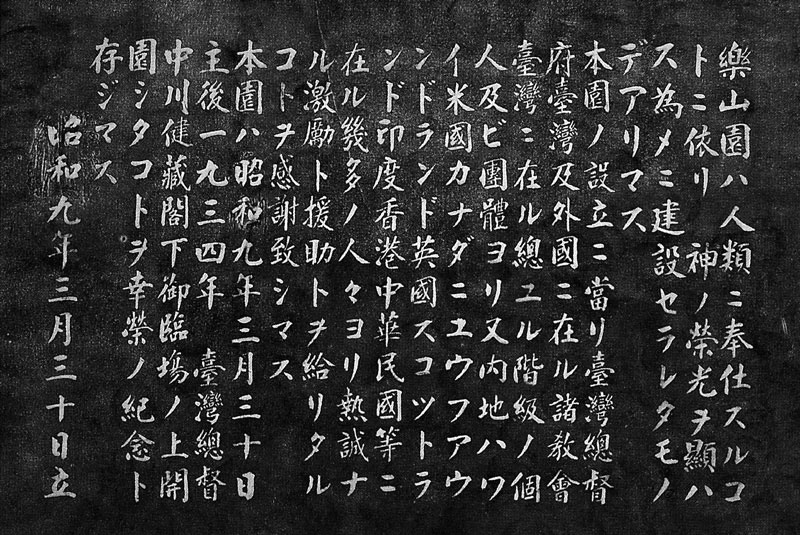 樂山園ハ人類ニ奉仕スルコ
トニ依リ　神ノ榮光ヲ顯ハ
ス為メニ建設セラレタモノ
デアリマス
本園ノ設立ニ當リ臺灣總督
府臺灣及外國ニ在ル諸敎會
臺灣ニ在ル總ユル階級ノ個
人及ビ團體ヨリ又内地ハワ
イ米國カナダニユウフアウ
ンドランド英國スコツトラ
ンド印度香港中華民國等ニ
在ル幾多ノ人々ヨリ熱誠ナ
ル激勵ト援助トヲ給リタル
コトヲ感謝致シマス
本園ハ昭和九年三月三十日
主後一九三四年　臺灣總督
中川健藏閣下御臨場ノ上開
園シタコトヲ幸榮ノ紀念ト
存ジマス
昭和九年三月三十日立